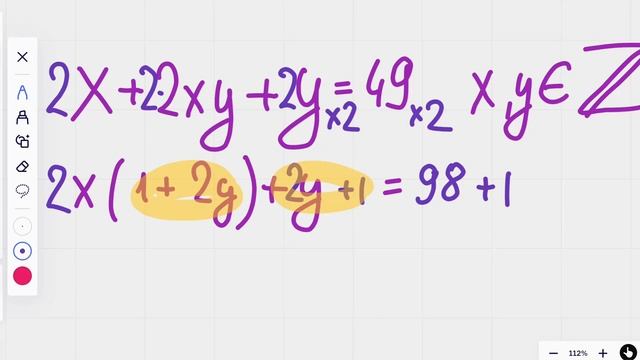 2x + 2·2xy + 2y = 49 x,y ∈ ℤ
x2 x2
2x(1 + 2y) + 2y + 1 = 98 + 1
112%